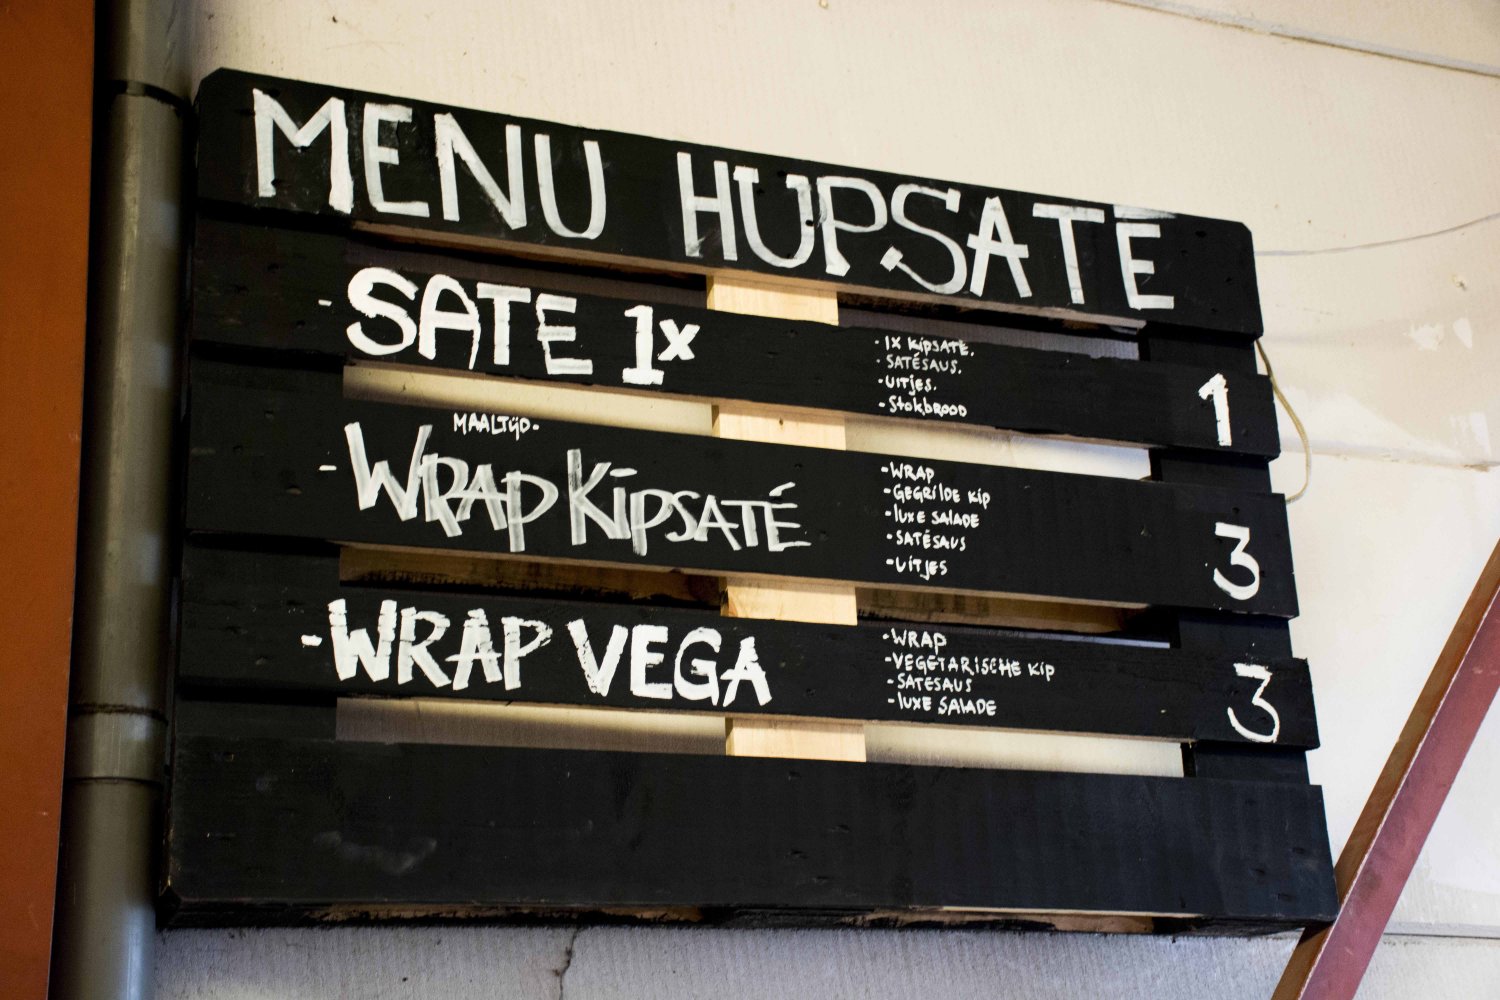 MENU HUPSATE
- SATE 1x
· 1x KipSATE.
· SATÉSAUS.
- uitjes.
- Stokbrood
1
MAALTIJD-
- WRAP KipSATÉ
- WRAP
- GEGRilDE Kip
- luxe SALADE
- SATÉSAUS
- uitjes
3
- WRAP VEGA
- WRAP
- VEGETARISCHE Kip
- SATESAUS
- luxe SALADE
3